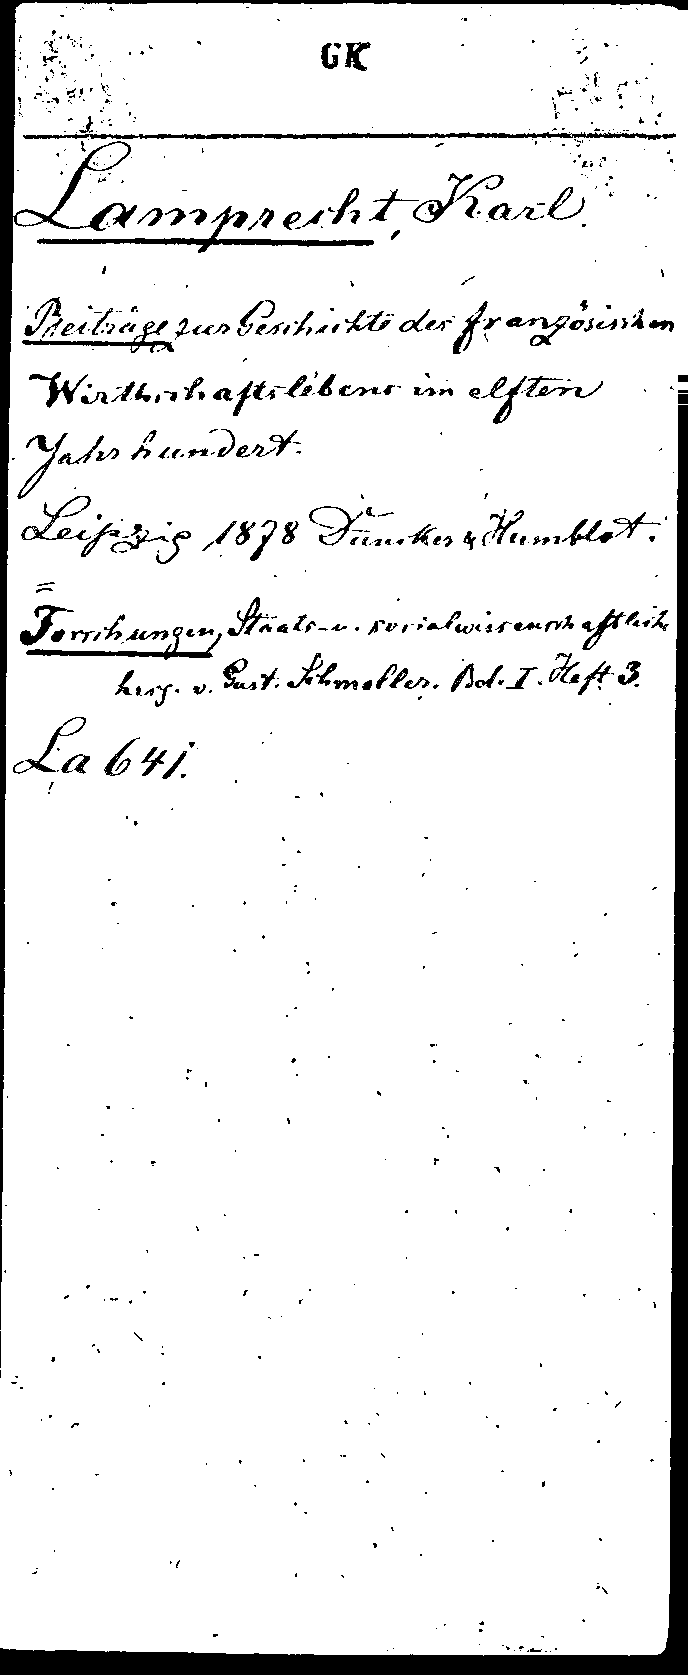 GK
Lamprecht, Karl.
Beiträge zur Geschichte des französischen
Wirthschaftslebens im elften
Jahrhundert.
Leipzig 1878 Duncker & Humblot.
=
Forschungen, Staats- u. socialwissenschaftliche
hrsg. v. Gust. Schmoller. Bd. I. Heft 3.
La 641.